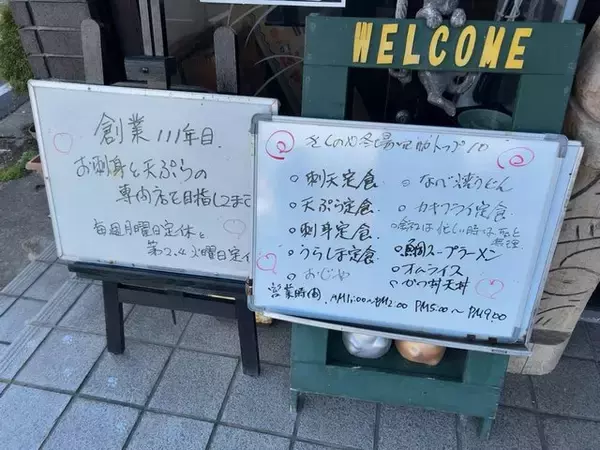 WELCOME
創業111年目.
お刺身と天ぷらの
専門店を目指してまて
毎週月曜日定休と
第2.4火曜日定イ
トップ10
刺天定食
天ぷら定食
刺身定食
うらしま定食
おじや
なべ焼うどん
カキフライ定食
鯛スープラーメン
オムライス
かつ丼天丼
営業時間 AM11:00〜PM2:00 PM5:00〜PM9:00